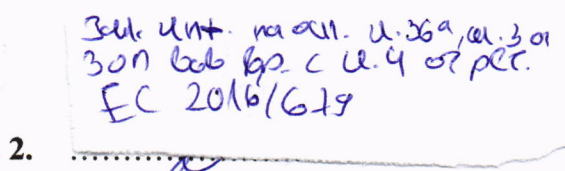 Зал. инф. на осн. чл. 36а, ал. 3 от
ЗОП във вр. с чл. 4 от рег.
ЕС 2016/679
2. ..............................